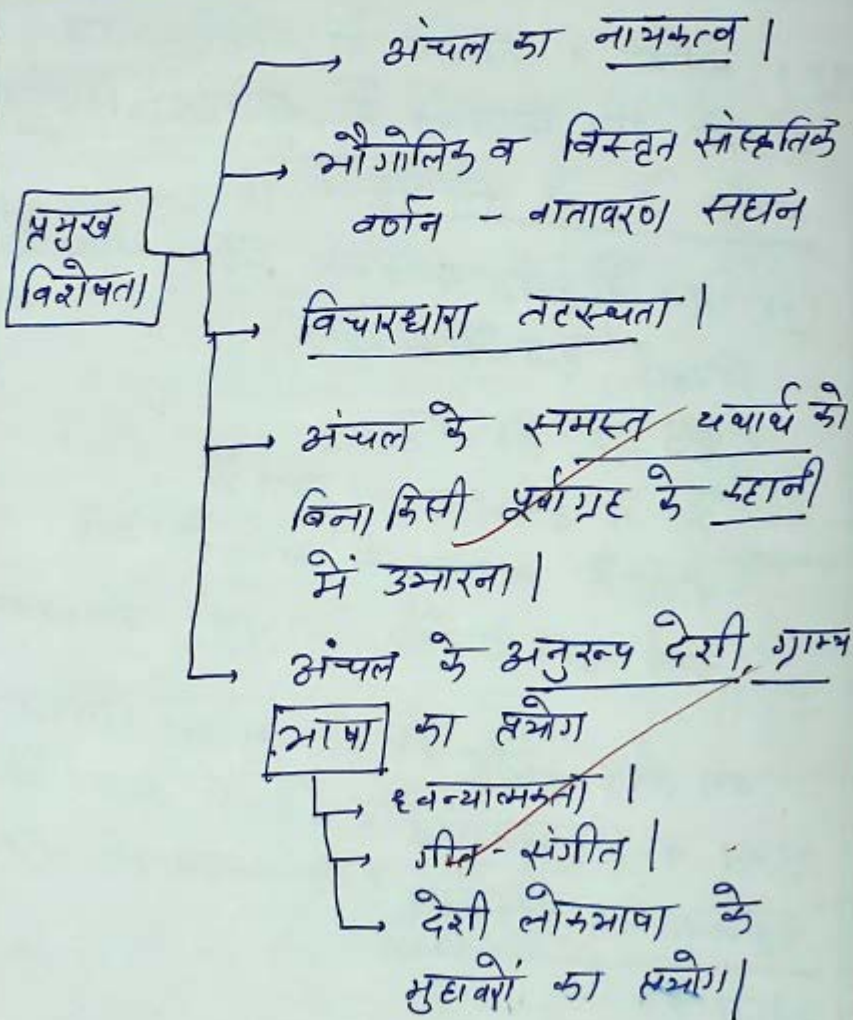 अंचल का नायकत्व |
भौगोलिक व विस्तृत सांस्कृतिक
वर्णन - वातावरण सघन
प्रमुख
विशेषता
विचारधारा तटस्थता |
अंचल के समस्त यथार्थ को
बिना किसी पूर्वाग्रह के कहानी
में उभारना |
अंचल के अनुरूप देशी, ग्राम्य
भाषा का प्रयोग
ध्वन्यात्मकता |
गीत - संगीत |
देशी लोकभाषा के
मुहावरों का प्रयोग |